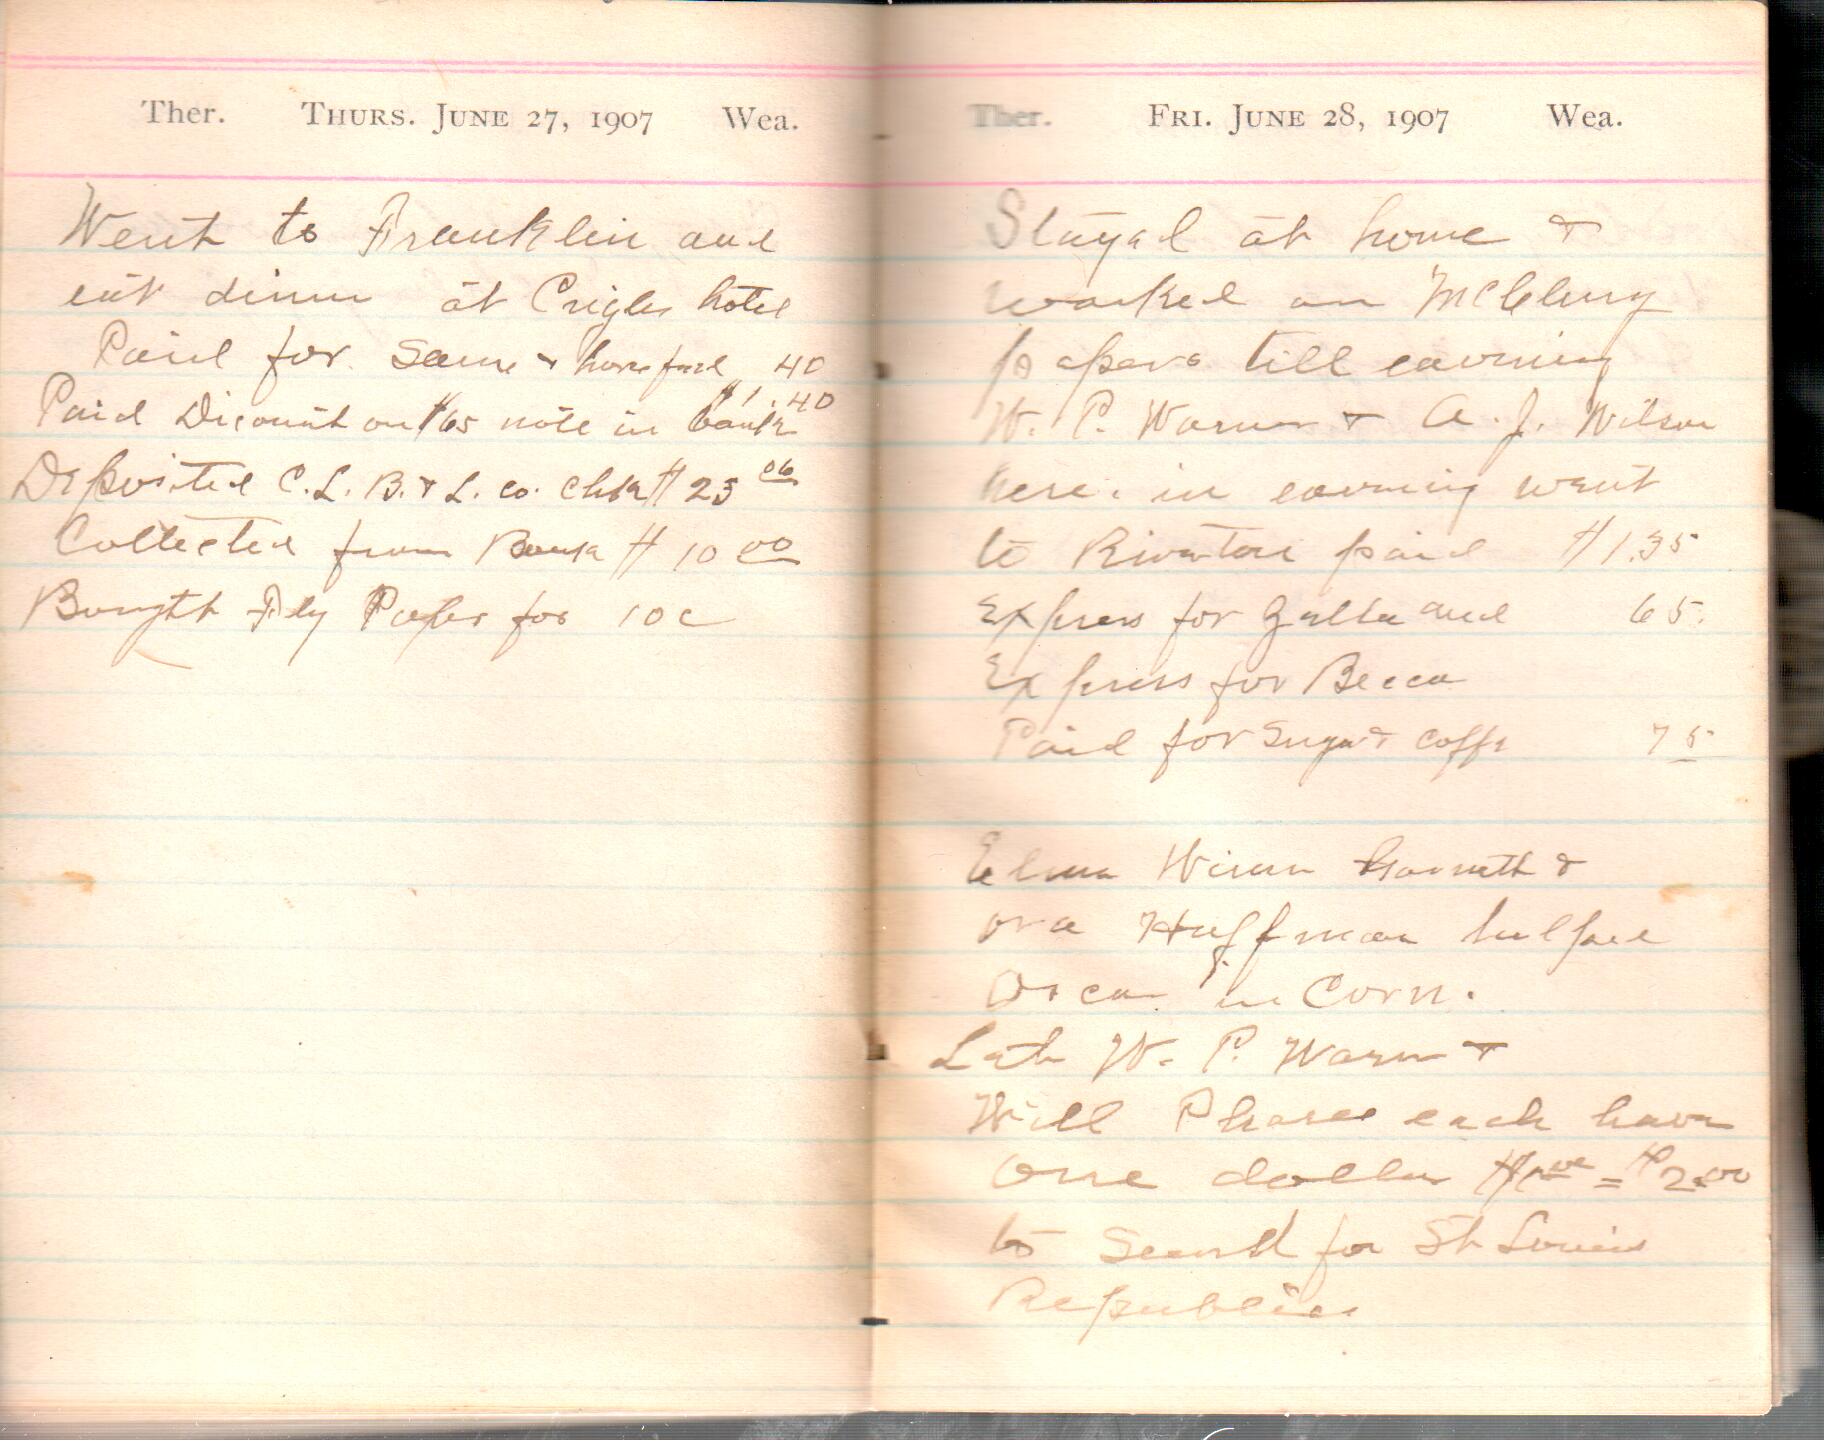 Ther. THURS. JUNE 27, 1907 Wea.
Went to Franklin and
eat dinner at Crigler hotel
Paid for same & horse feed 40
$1.40
Paid Discount on $65 note in bank
Deposited C. L. B. & L. co. chk $25 06
Collected from Bank $10 00
Bought Fly Paper for 10 c
Ther. FRI. JUNE 28, 1907 Wea.
Stayed at home &
worked on McClury
papers till evening
W. P. Warner & A. J. Wilson
here. in evening went
to Riverton paid $1.35
Express for Zella and 65
Express for Becca
Paid for Sugar & coffe 75
Elmer Garnett &
ora Huffman helped
in Corn.
Let W. P. Warner &
Will Phares each have
one dollar $1.00 = $2.00
to Send for St Louis
Republic